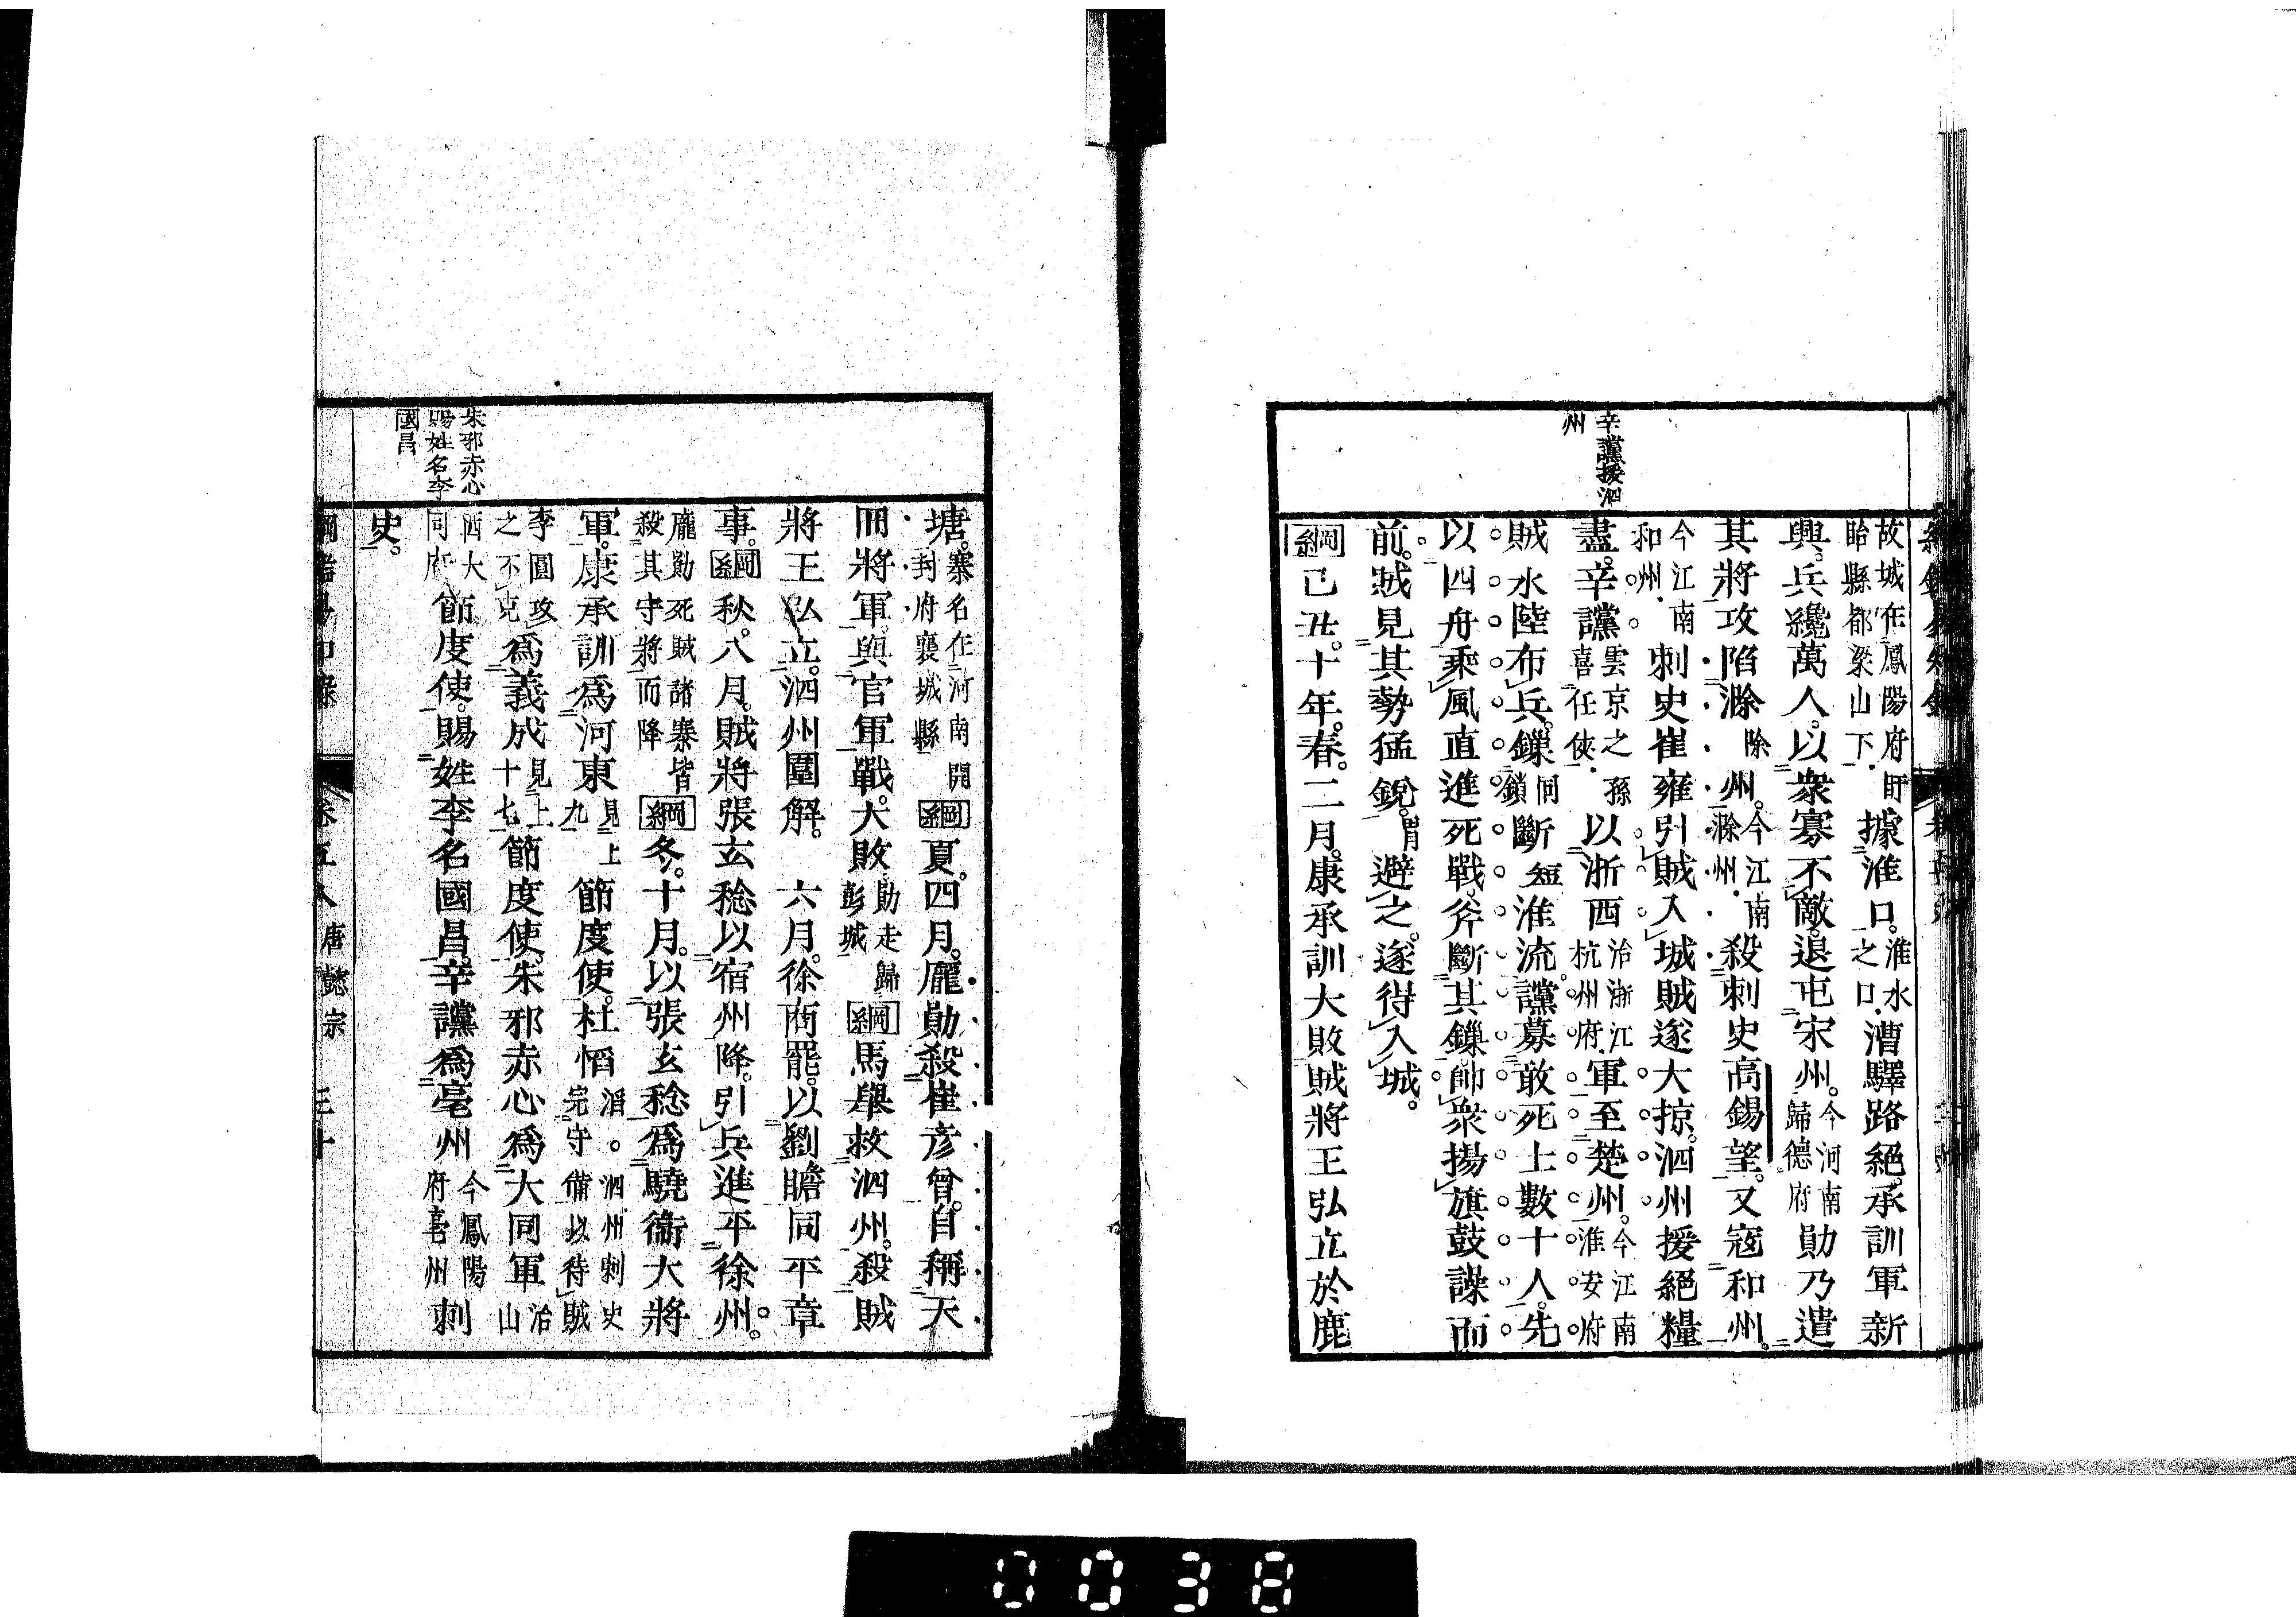 辛讜援泗
州
故城在鳳陽府盱
眙縣都梁山下
據淮口。
淮水
之口
漕驛路絕。承訓軍新
興。兵纔萬人。以衆寡不敵。退屯宋州。
今河南
歸德府
勛乃遣
其將攻陷滁
除
州。
今江南
滁州
殺刺史高錫望。又寇和州。
今江南
和州
刺史崔雍引賊入城賊遂大掠。泗州援絕糧
盡。辛讜。
雲京之孫
喜任俠
以浙西
治浙江
杭州府
軍至楚州。
今江南
淮安府
賊水陸布兵。鏁
同
鎖
斷
短
淮流。讜募敢死士數十人。先
以四舟乘風直進死戰。斧斷其鏁。帥衆揚旗鼓譟而
前。賊見其勢猛銳。
胃
避之。遂得入城。
綱己丑。十年。春。二月。康承訓大敗賊將王弘立於鹿
塘。
寨名在河南開
封府襄城縣
綱夏。四月。龐勛殺崔彦曾。自稱天
冊將軍。與官軍戰。大敗。
勛走歸
彭城
綱馬舉救泗州。殺賊
將王弘立。泗州圍解。 六月。徐商罷。以劉瞻同平章
事。綱秋。八月。賊將張玄稔以宿州降。引兵進平徐州。
龐勛死賊諸寨皆
殺其守將而降
綱冬。十月。以張玄稔爲驍衞大將
軍。康承訓爲河東
見上
九
節度使。杜慆
滔。泗州刺史
完守備以待賊
李圓攻
之不克
爲義成
見上
十七
節度使。朱邪赤心爲大同軍
治
山
西大
同府
節度使。賜姓李名國昌。辛讜爲亳州
今鳳陽
府亳州
刺
史。
朱邪赤心
賜姓名李
國昌
綱鑑易知錄
卷五八
唐懿宗
三十
0038